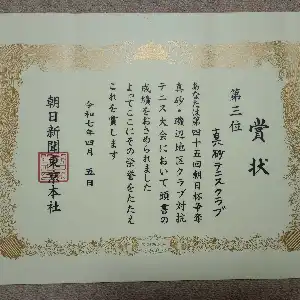 賞状
第三位
真砂テニスクラブ
あなたは第四十五回朝日杯争奪
真砂・磯辺地区クラブ対抗
テニス大会において頭書の
成績をおさめられました
よってここにその栄誉をたたえ
これを賞します
令和七年四月五日
朝日新聞東京本社